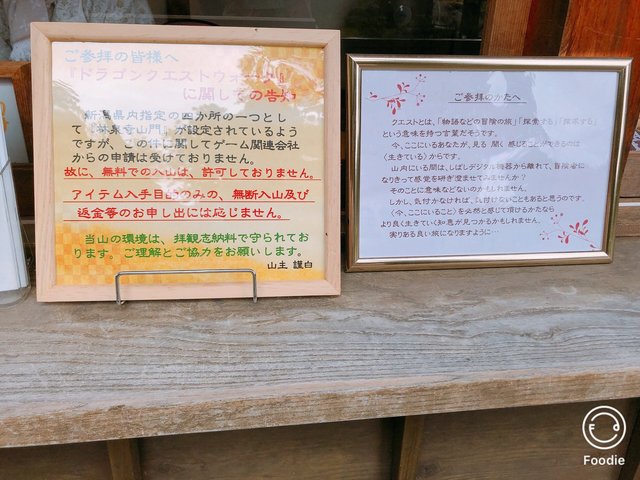 ご参拝の皆様へ
『ドラゴンクエストウォーク』
に関しての告知
新潟県内指定の四か所の一つとし
て『林泉寺山門』が設定されているよう
ですが、この件に関してゲーム関連会社
からの申請は受けておりません。
故に、無料での入山は、許可しておりません。
アイテム入手目的のみの、無断入山及び
返金等のお申し出には応じません。
当山の環境は、拝観志納料で守られてお
ります。ご理解とご協力をお願いします。
山主 謹白
ご参拝のかたへ
クエストとは、「物語などの冒険の旅」「探索する」「探求する」
という意味を持つ言葉だそうです。
今、ここにいるあなたが、見る・聞く・感じることができるのは
〈生きている〉からです。
山内にいる間は、しばしデジタル機器から離れて、冒険者に
なりきって感覚を研ぎ澄ませてみませんか?
そのことに意味などないのかもしれません。
しかし、気付かなければ、気付けないこともあると思うのです。
〈今、ここにいること〉を必然と感じて頂けるかたなら
より良く生きていく知恵が見つかるかもしれません。
実りある良い旅になりますように…
Foodie